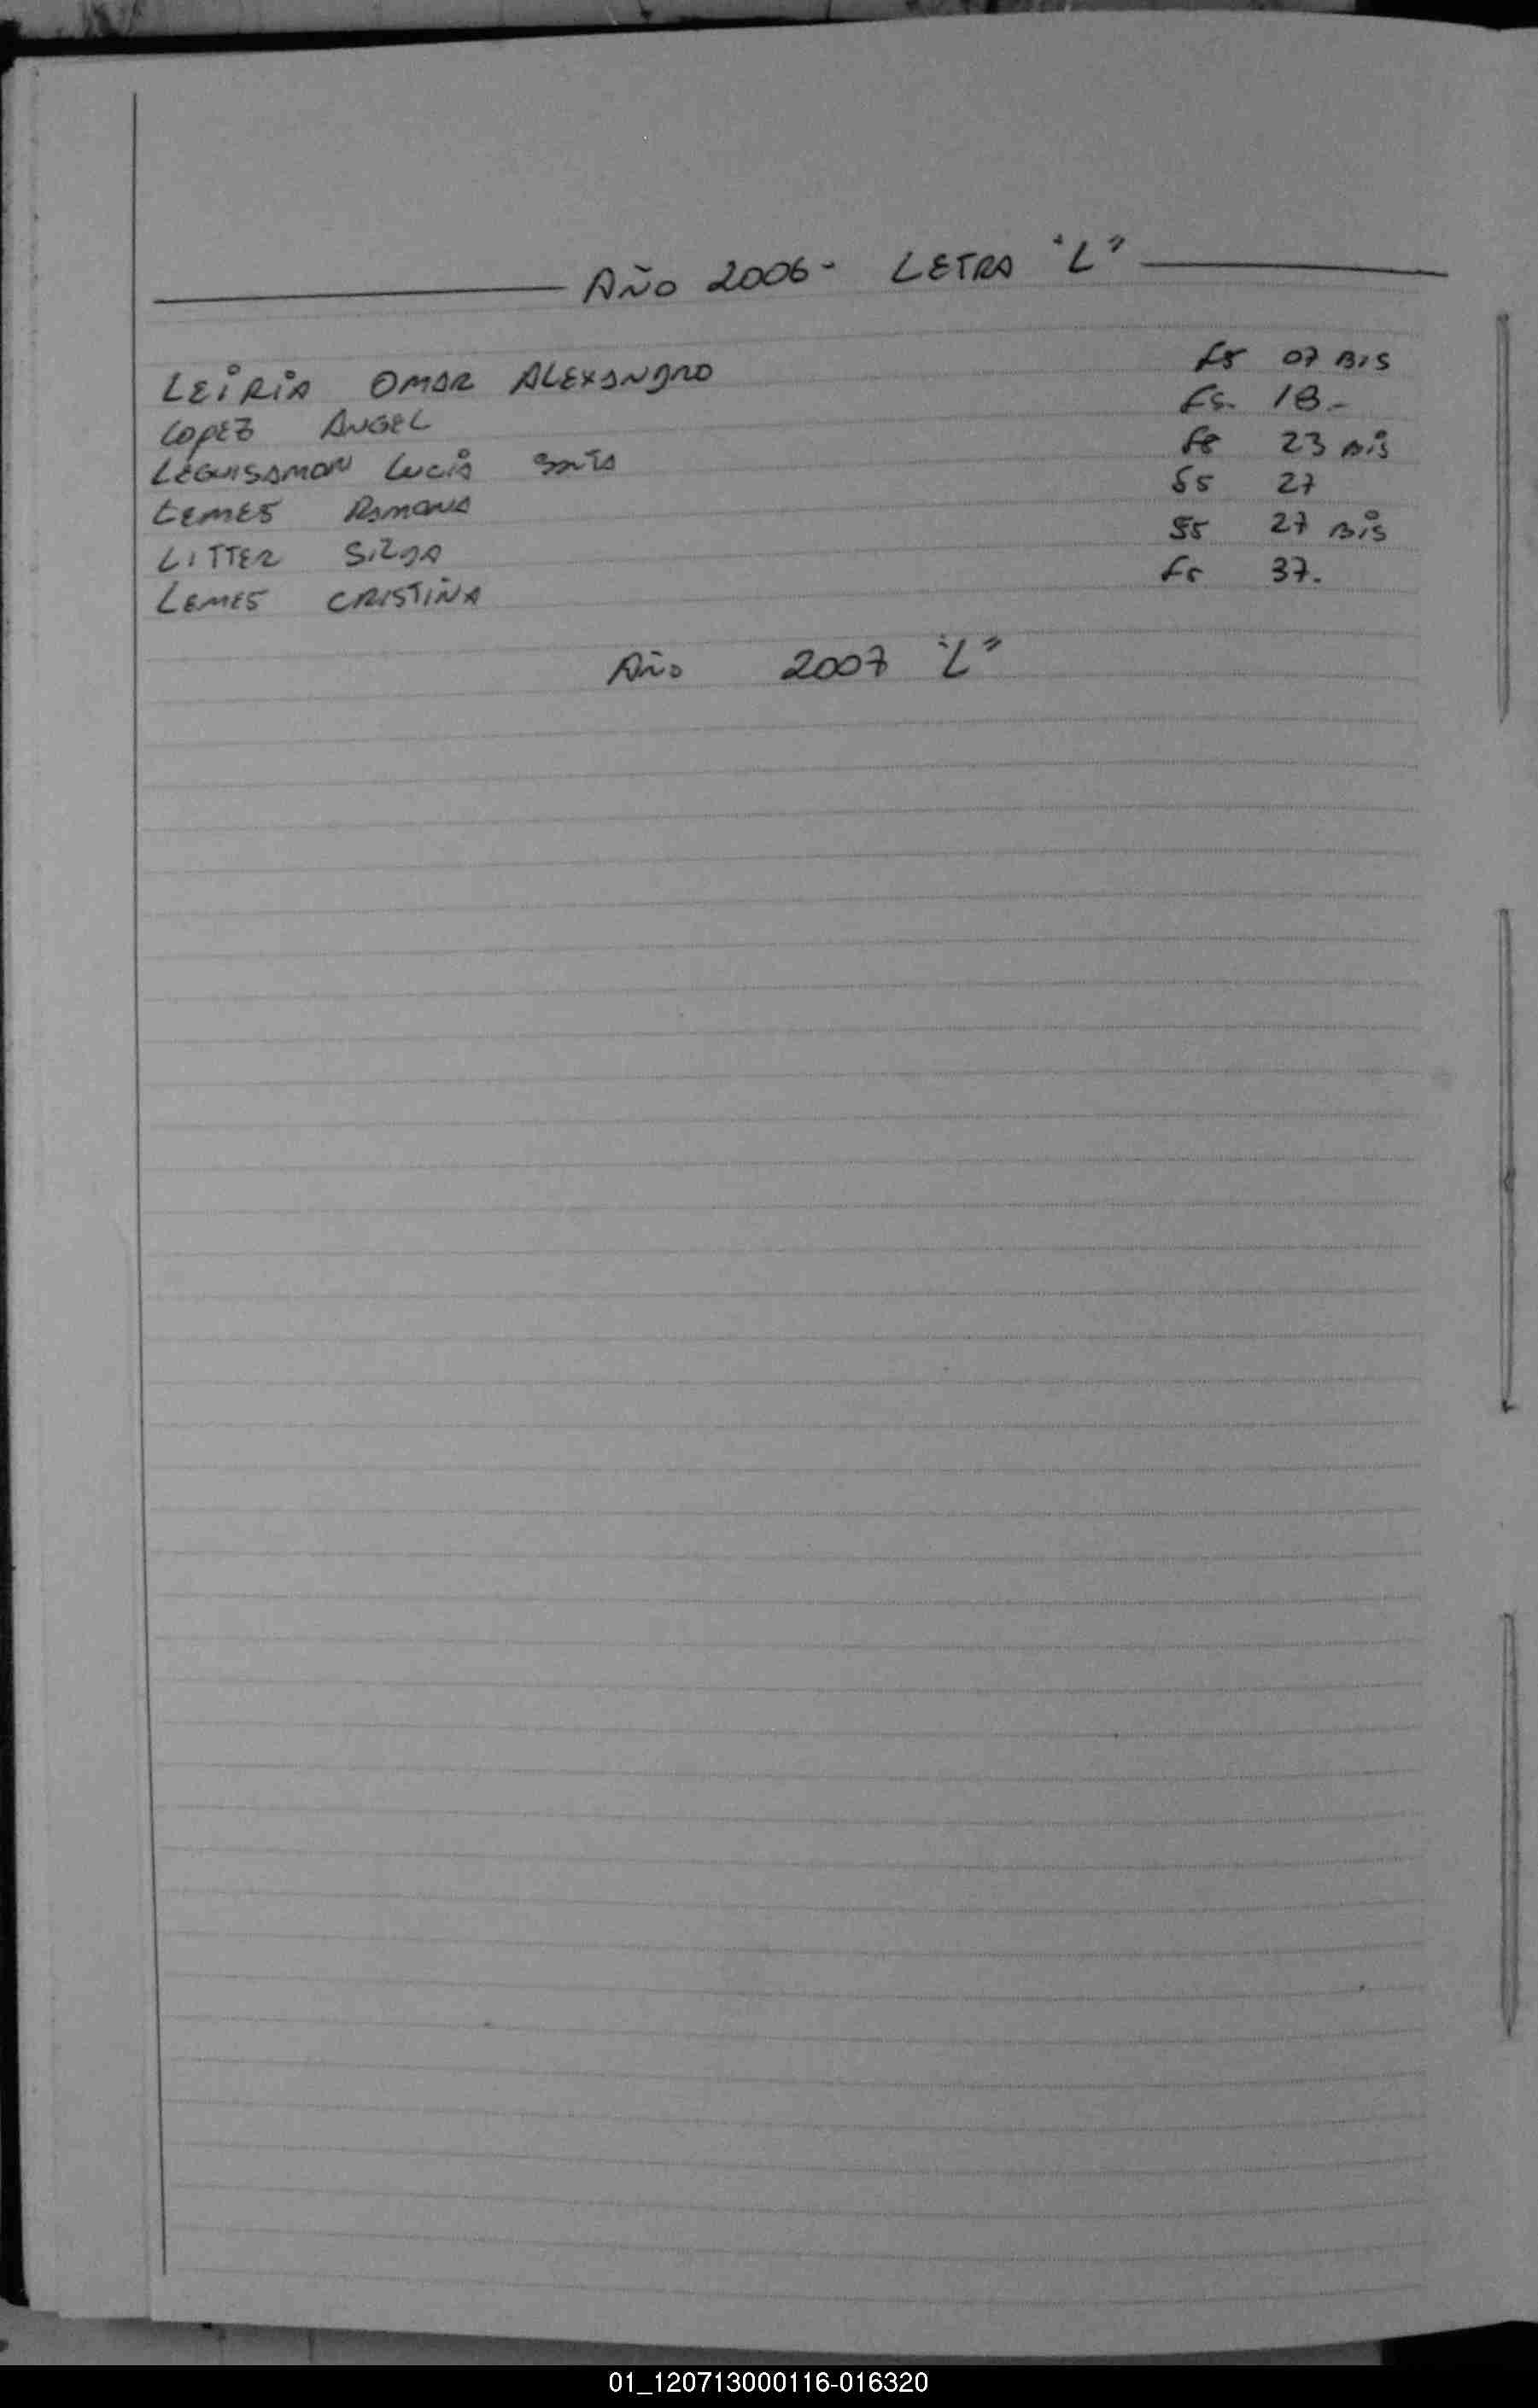 Año 2006- LETRA "L"
LEIRIA OMAR ALEXANDRO Fs 07 BIS
LOPEZ ANGEL Fs. 18.-
LEGUISAMON Lucia Fs 23 Bis
LEMES Ramona Fs 27
LITTER Fs 27 Bis
LEMES CRISTINA Fs 37.
Año 2007 "L"
01_120713000116-016320